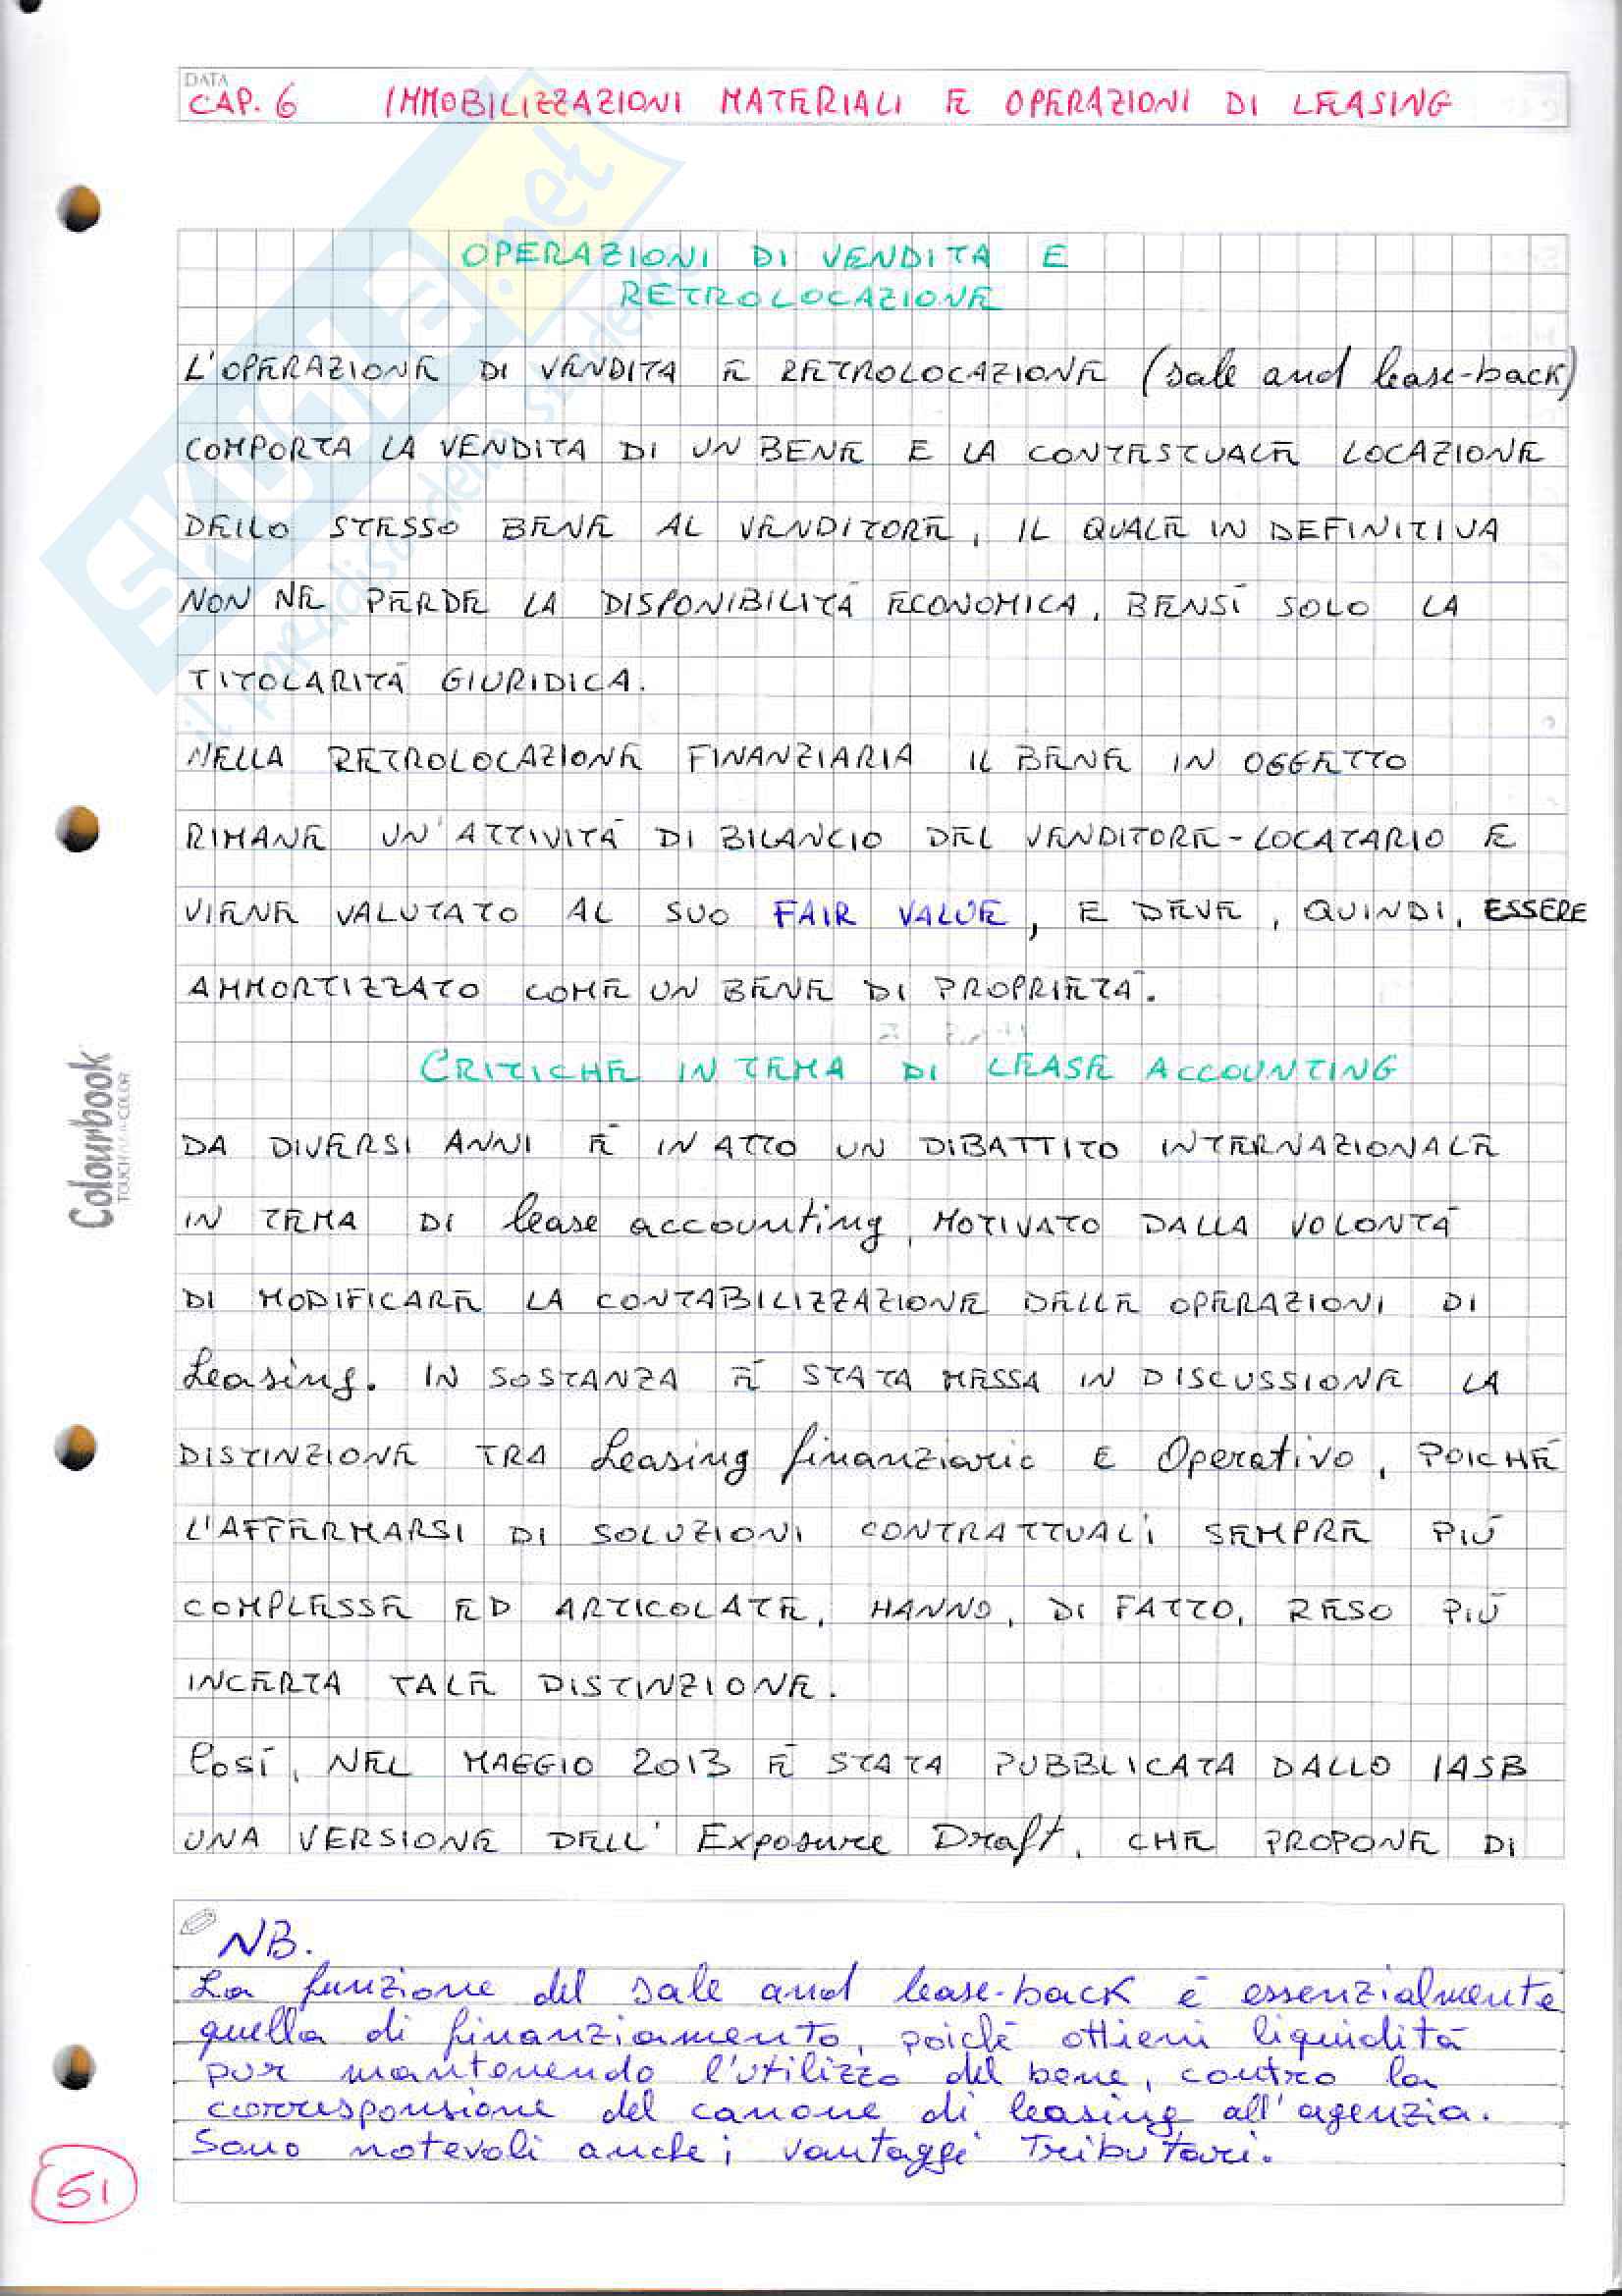 DATA
CAP. 6 IMMOBILIZZAZIONI MATERIALI E OPERAZIONI DI LEASING
SKUOLA.net
il paradiso dello studente
OPERAZIONI DI VENDITA E
RETROLOCAZIONE
L'OPERAZIONE DI VENDITA E RETROLOCAZIONE (sale and lease-back)
COMPORTA LA VENDITA DI UN BENE E LA CONTESTUALE LOCAZIONE
DELLO STESSO BENE AL VENDITORE, IL QUALE IN DEFINITIVA
NON NE PERDE LA DISPONIBILITÀ ECONOMICA, BENSÌ SOLO LA
TITOLARITÀ GIURIDICA.
NELLA RETROLOCAZIONE FINANZIARIA IL BENE IN OGGETTO
RIMANE UN'ATTIVITÀ DI BILANCIO DEL VENDITORE-LOCATARIO E
VIENE VALUTATO AL SUO FAIR VALUE, E DEVE, QUINDI, ESSERE
AMMORTIZZATO COME UN BENE DI PROPRIETÀ.
CRITICHE IN TEMA DI LEASE ACCOUNTING
DA DIVERSI ANNI È IN ATTO UN DIBATTITO INTERNAZIONALE
IN TEMA DI lease accounting, MOTIVATO DALLA VOLONTÀ
DI MODIFICARE LA CONTABILIZZAZIONE DELLE OPERAZIONI DI
Leasing. IN SOSTANZA È STATA MESSA IN DISCUSSIONE LA
DISTINZIONE TRA Leasing finanziario E Operativo, POICHÈ
L'AFFERMARSI DI SOLUZIONI CONTRATTUALI SEMPRE PIÙ
COMPLESSE ED ARTICOLATE, HANNO, DI FATTO, RESO PIÙ
INCERTA TALE DISTINZIONE.
Così, NEL MAGGIO 2013 È STATA PUBBLICATA DALLO IASB
UNA VERSIONE DELL'Exposure Draft, CHE PROPONE DI
Colourbook
NB.
La funzione del sale and lease-back è essenzialmente
quella di finanziamento, poichè ottieni liquidità
pur mantenendo l'utilizzo del bene, contro la
corresponsione del canone di leasing all'agenzia.
Sono notevoli anche i vantaggi Tributari.
51